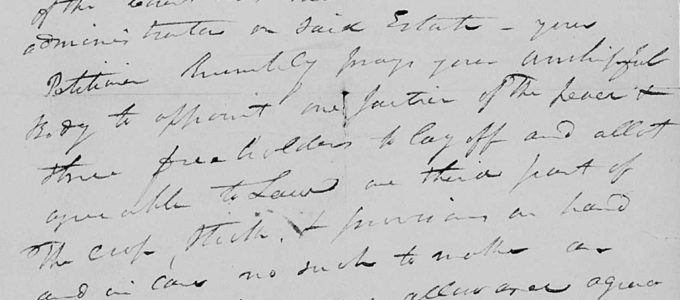 of the
administrator on said Estate – your
Petitioner Humbly prays your worshipful
Body to appoint one Justice of the peace &
three freeholders to lay off and allot
agreeable to Law one third part of
The Crop, Stock, & provisions on hand
and in case no such to make an
allowance agree